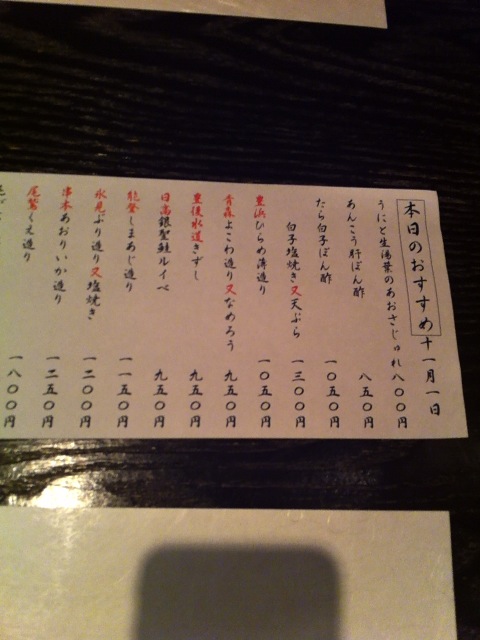 本日のおすすめ 十一月一日
うにと生湯葉のあおさじゅれ 八〇〇円
あんこう肝ぽん酢 八五〇円
たら白子ぽん酢 一〇五〇円
白子塩焼き又天ぷら 一三〇〇円
豊浜ひらめ薄造り 一〇五〇円
青森よこわ造り又なめろう 九五〇円
豊後水道きずし 九五〇円
日高銀聖鮭ルイベ 九五〇円
能登しまあじ造り 一一五〇円
氷見ぶり造り又塩焼き 一二〇〇円
串本あおりいか造り 一二五〇円
尾鷲くえ造り 一八〇〇円